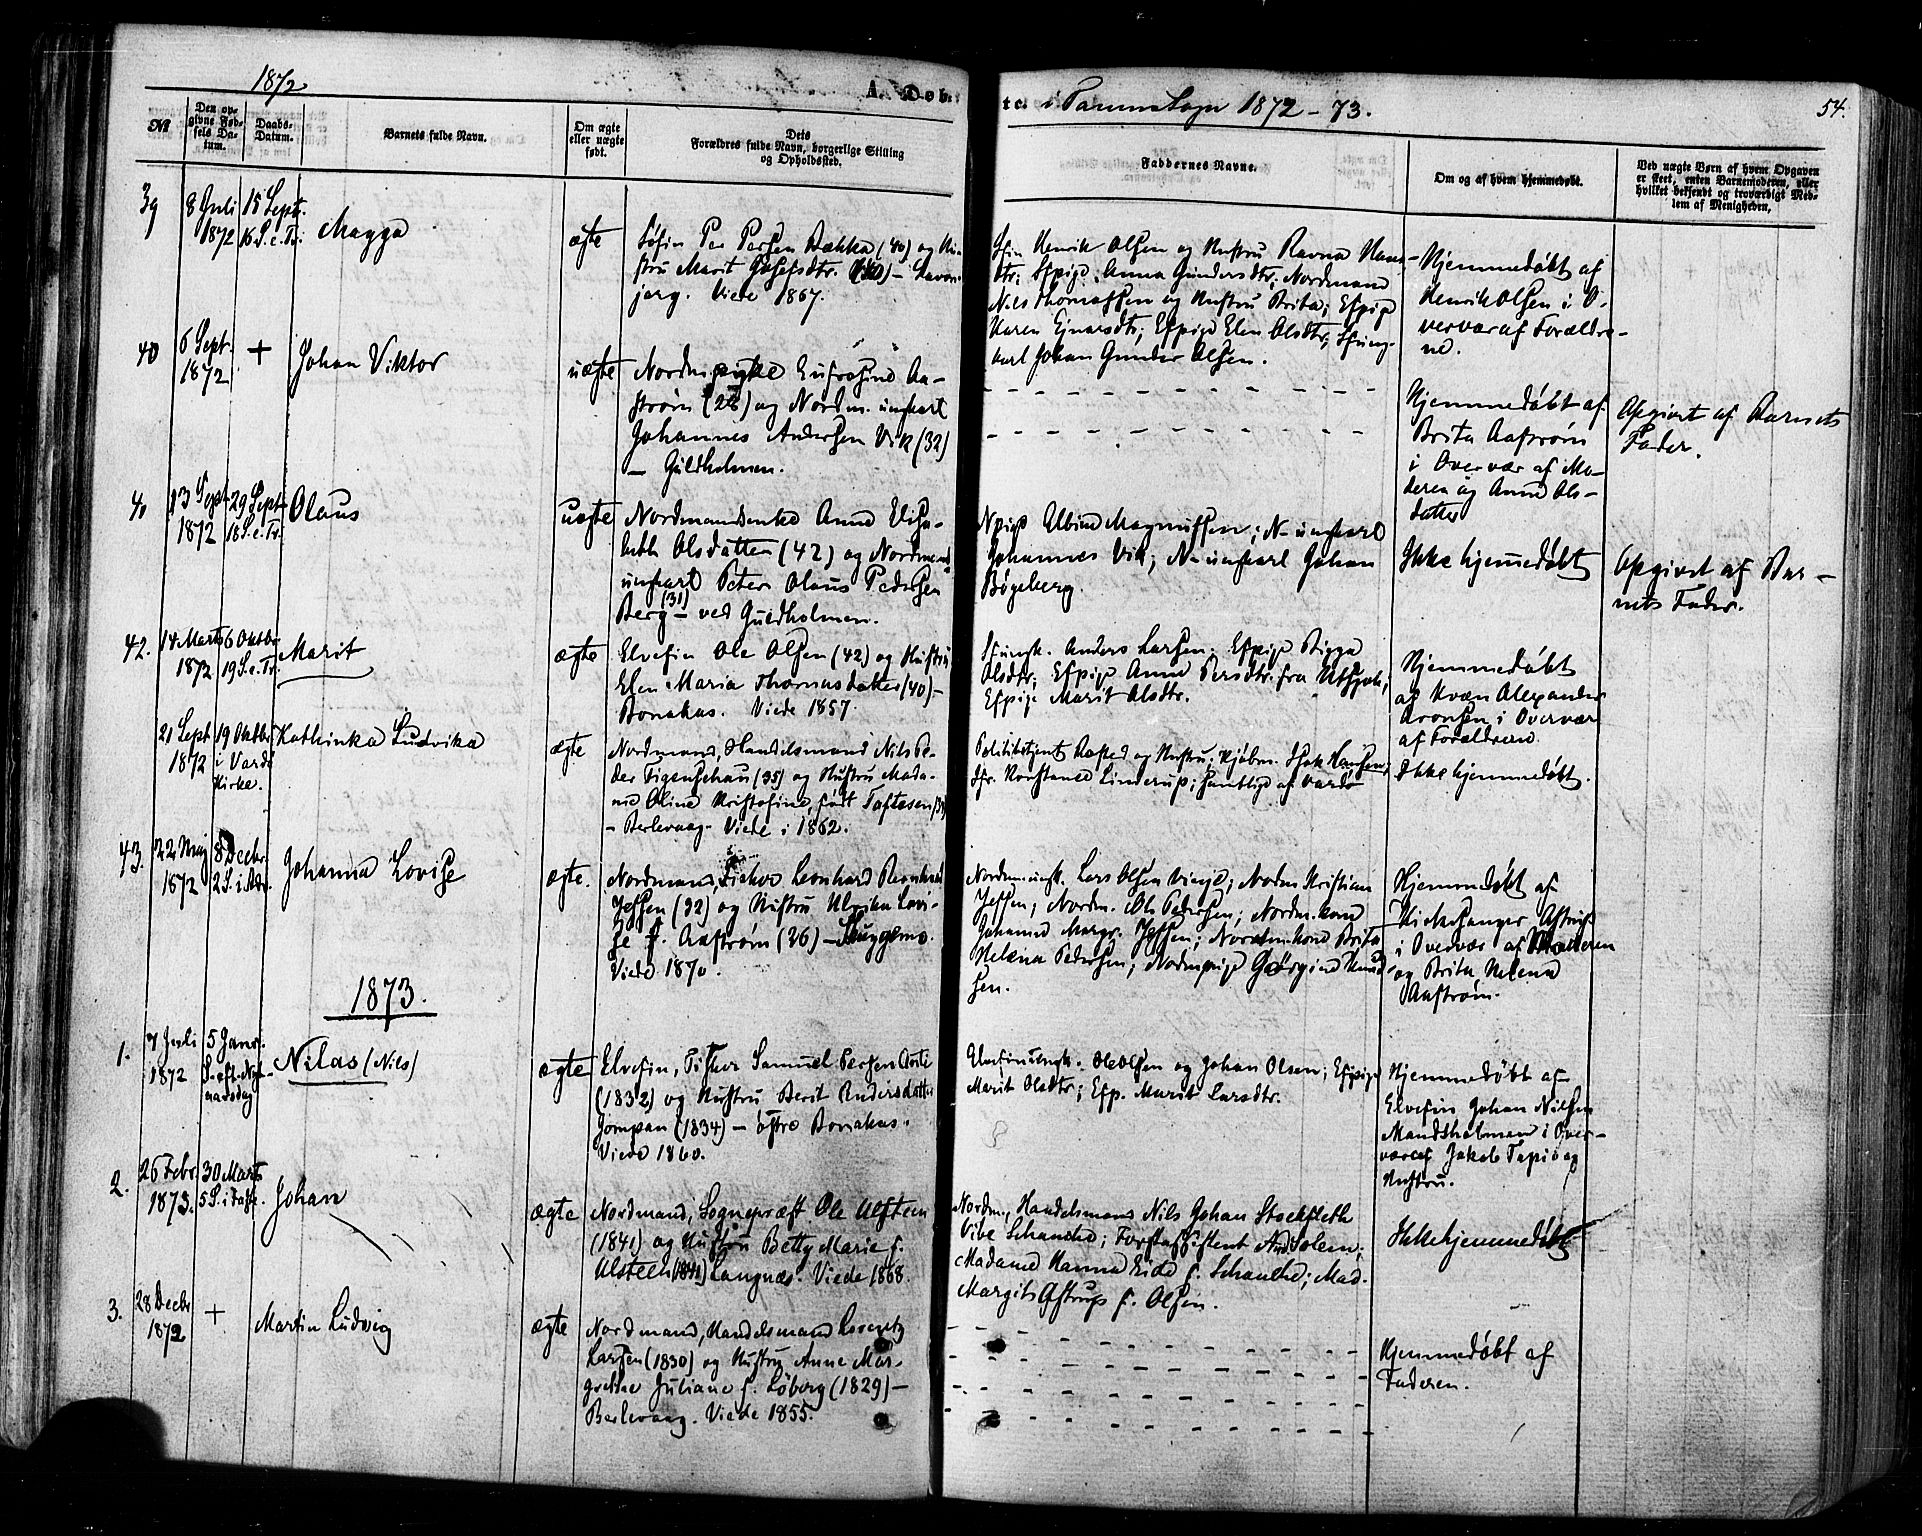 1872
A. Døbte i Tanna Sogn 1872-73.
54.
№
Den opgivne Fødsels Datum.
Daabs-Datum.
Barnets fulde Navn.
Om ægte eller uægte født.
Dets Forældres fulde Navn, borgerlige Stilling og Opholdssted.
Faddernes Navne.
Om og af hvem hjemmedøbt.
Ved uægte Børn af hvem Opgaven er skeet, enten Barnemoderen, eller hvilket bekjendt og troværdigt Medlem af Menigheden.
39
8 Juli
1872
15 Sept.
16 S. e. Tr.
Magga
ægte
Søfin Per Persen Bækka (40) og Hu-
stru Marit Josefsdtr.
jarg. Viede 1867.
Sfin Henrik Olsen og Hustru Ravna Hans-
dtr; Sfpige Anna Gundersdtr; Nordmand
Nils Thomassen og Hustru Brita; Efpige
Karen Ejnarsdtr; Efpige Elen Olsdtr; Sfung-
karl Johan Gunder Olsen.
Hjemmedøbt af
Henrik Olsen i O-
vervær af Forældre-
ne.
40
6 Sept.
1872
+
Johan Viktor
uægte
Nordm. pige Eufrosine Aa-
strøm (26) og Nordm. ungkarl
Johannes Andersen Vik (32)
- Guldholmen.
Hjemmedøbt af
Brita Aastrøm
i Overvær af Mo-
deren og Anne Ols-
datter
Opgivet af Barnets
Fader.
41
13 Sept
1872
29 Sept
18 S. e. Tr.
Olaus
uægte
Nordmandsenke Anne Elisa-
beth Olsdatter (42) og Nordmands
ungkarl Peter Olaus Pedersen
Berg (31) - ved Guldholmen.
Npige Albine Magnussen; N-ungkarl
Johannes Vik; N-ungkarl Johan
Bøgeberg.
Ikke hjemmedøbt
Opgivet af Bar-
nets Fader.
42.
14 Marts
1872
6 Oktbr
19 S. e. Tr.
Marit
ægte
Elvefin Ole Olsen (42) og Hustru
Elen Maria Thomasdatter (40) -
Bonakas. Viede 1857.
Sfungk. Anders Larsen; Efpige Bigga
Olsdtr; Efpige Anne Persdtr. fra Utsjok;
Efpige Marit Olsdtr.
Hjemmedøbt
af Kvæn Alexander
Aronsen i Overvær
af Forældrene.
21 Sept
1872
19 Oktbr
i Vardø
Kirke.
Kathinka Ludvika
ægte
Nordmand, Handelsmand Nils Pe-
der Figenschau (35) og Hustru Mada-
me Oline Kristofine, født Toftesen
- Berlevaag. Viede i 1862.
Politibetjent Rafted og Hustru; Kjøbm. Isak Hansen;
Jfr. Konstance Linderup; samtlige af Vardø
Ikke hjemmedøbt.
43.
22 Maj
1872
8 Decbr.
2 S. i Adv.
Johanna Lovise
ægte.
Nordmand, Fisker Leonhard Bernhard
Jessen (32) og Hustru Ulrika Lovi-
se f. Aastrøm (26) - Stuggenæs.
Viede 1870.
Nordm.ungk. Lars Olsen Vinje; Nordm Kristian
Jessen; Nordm. Ole Pedersen; Nordm. kone
Johanne Margr. Jessen; Nordm.kone Brita
Helena Pedersen; Nordm.pige Georgine Knud-
sen.
Hjemmedøbt af
Kirkesanger Astrup
i Overvær af Moderen
og Brita Helena
Aastrøm.
1873.
1.
7 Juli
1872
5 Januar
S. eft. Nyt-
aarsdag
Nilas (Nils)
ægte
Elvefin, Fisker Samuel Persen
(1832) og Hustru Berit Andersdatter
Jompan (1834) - østre Bonakas.
Viede 1860.
Elvefinungk. Ole Olsen og Johan Olsen; Efpige
Marit Olsdtr; Efp. Marit Larsdtr.
Hjemmedøbt af
Elvefin Johan Nilsen
Mandsholman i Over-
vær af Jakob Tapio og
Hustru.
2.
26 Febr.
1873.
30 Marts
5 S. i Faste.
Johan
ægte
Nordmand, Sognepræst Ole Alsteen
(1841) og Hustru Betty Marie f.
Alsteen (1841) Langnæs. Viede 1868.
Nordm., Handelsmand Nils Johan Stockfleth
Vibe Schanche; Forstassistent And. Solem;
Madame Hanna Eide f. Schanche; Mad.
Margit Astrup f. Olsen.
Ikke hjemmedøbt
3.
28 Decbr
1872
+
Martin Ludvig
ægte
Nordmand, Handelsmand Lorentz
Larsen (1830) og Hustru Anne Mar-
grethe Juliane f. Løberg (1829) -
Berlevaag. Viede 1855.
Hjemmedøbt af
Faderen.